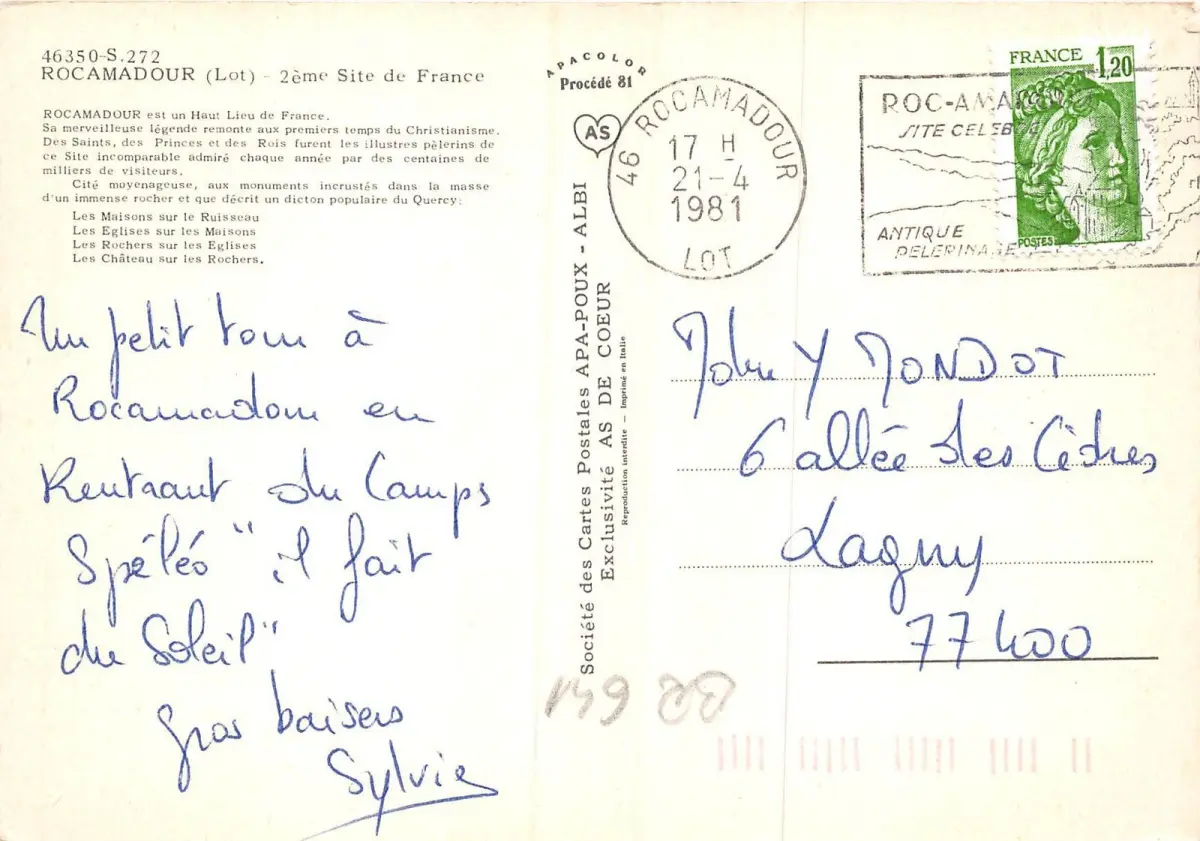 46350-S.272
ROCAMADOUR (Lot) - 2ème Site de France
ROCAMADOUR est un Haut Lieu de France.
Sa merveilleuse légende remonte aux premiers temps du Christianisme.
Des Saints, des Princes et des Rois furent les illustres pèlerins de
ce Site incomparable admiré chaque année par des centaines de
milliers de visiteurs.
Cité moyenageuse, aux monuments incrustés dans la masse
d'un immense rocher et que décrit un dicton populaire du Quercy:
Les Maisons sur le Ruisseau
Les Eglises sur les Maisons
Les Rochers sur les Eglises
Les Château sur les Rochers.
Un petit tour à
Rocamadour en
Rentrant du Camps
Spéléo "il fait
du Soleil"
gros baisers
Sylvie
APACOLOR
Procédé 81
AS
Société des Cartes Postales APA-POUX - ALBI
Exclusivité AS DE COEUR
Reproduction interdite - Imprimé en Italie
46 ROCAMADOUR
17 H
21-4
1981
LOT
ROC-AMADOUR
SITE CELEBRE
ANTIQUE
PELERINAGE
FRANCE
1,20
POSTES
John Y MONDOT
6 allée des Cèdres
Lagny
77400
149